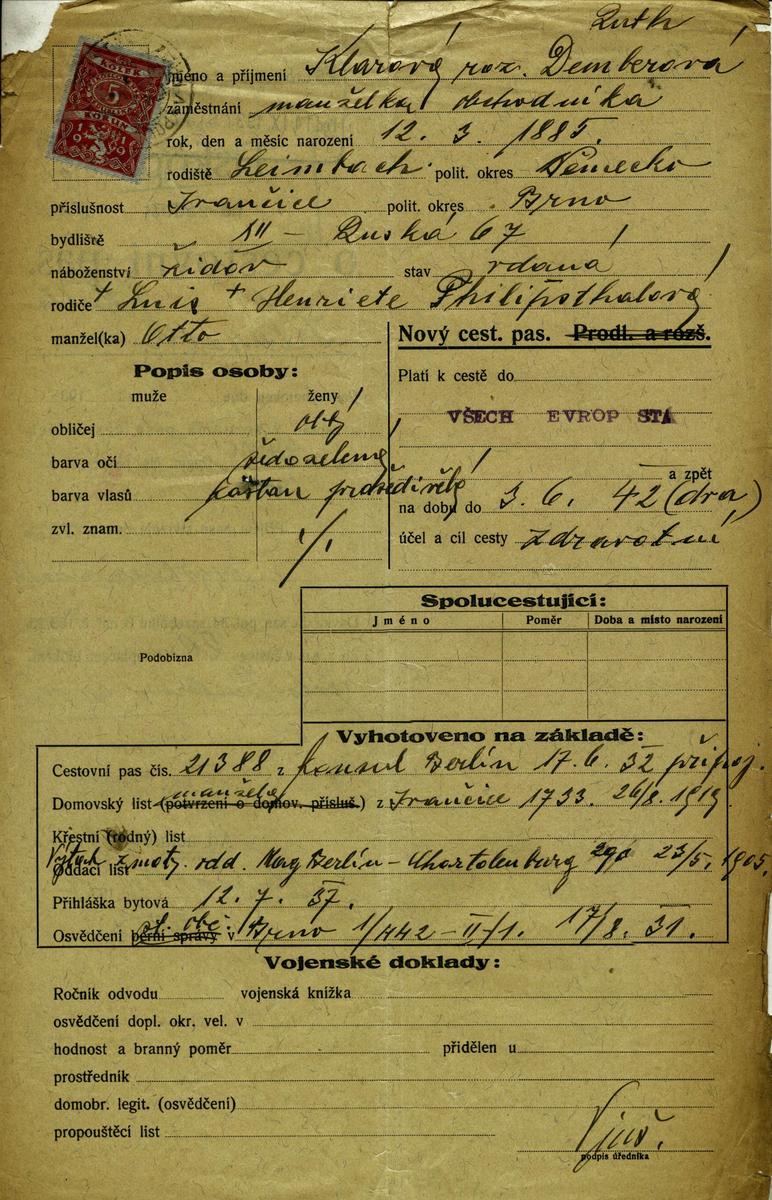 Ruth
KOLEK
5
KORUN
jméno a příjmení Klarová roz. Demberová
zaměstnání manželka obchodníka
rok, den a měsíc narození 12. 3. 1885.
rodiště Leimbach polit. okres Německo
příslušnost Ivančice polit. okres Brno
bydliště XII – Ruská 67
náboženství židov stav vdaná
rodiče + Luis + Henriete Philipsthalová
manžel(ka) Otto
Nový cest. pas. Prodl. a rozš.
Popis osoby:
muže ženy
obličej obl
barva očí šedozelené
barva vlasů kaštan prošedivělé
zvl. znam. ./.
Platí k cestě do
VŠECH EVROP STÁ
a zpět
na dobu do 3. 6. 42 (dva)
účel a cíl cesty zdravotní
Spolucestující:
Jméno Poměr Doba a místo narození
Podobizna
Vyhotoveno na základě:
Cestovní pas čís. 21388 z konsul Berlín 17. 6. 32 připoj.
manžela
Domovský list (potvrzení o domov. přísluš.) z Ivančice 1733. 26/8. 1919.
Křestní (rodný) list
Výtah z matr. odd. Mag Berlín – Chartolenburg 290 23/5. 1905.
Oddací list
Přihláška bytová 12. 7. 37.
st. obč.
Osvědčení berní správy v Brno 1/442–II/1. 17/8. 31.
Vojenské doklady:
Ročník odvodu vojenská knížka
osvědčení dopl. okr. vel. v
hodnost a branný poměr přidělen u
prostředník
domobr. legit. (osvědčení)
propouštěcí list
podpis úředníka